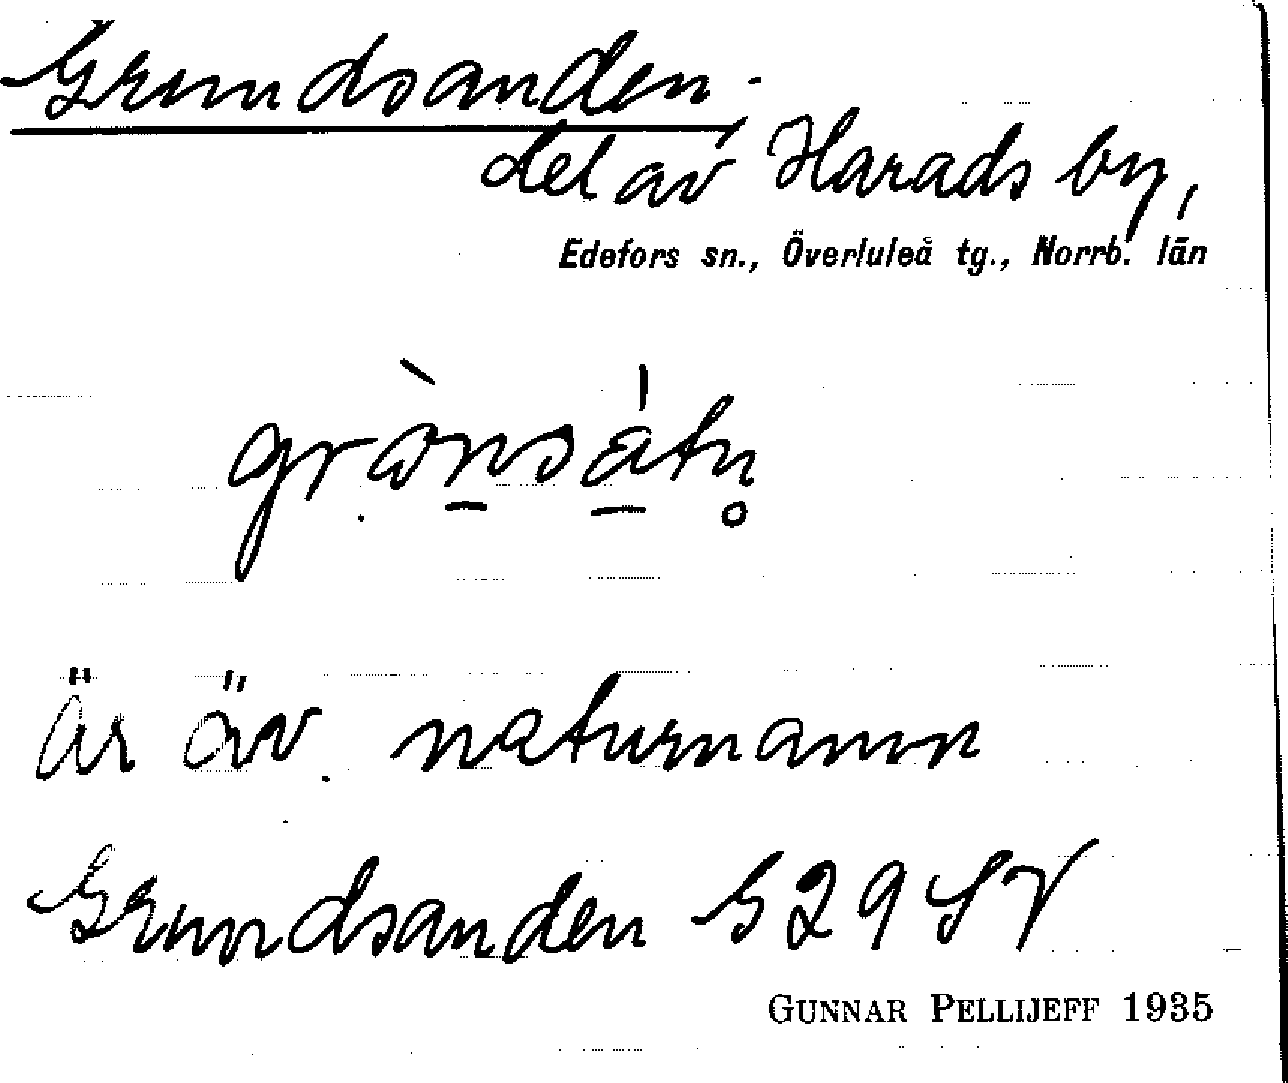 Grundsanden.
del av Harads by,
Edefors sn., Överluleå tg., Norrb. län
grὼn̲sá̲tn̥
Är äv. naturnamn
Grundsanden G29 SV
GUNNAR PELLIJEFF 1935